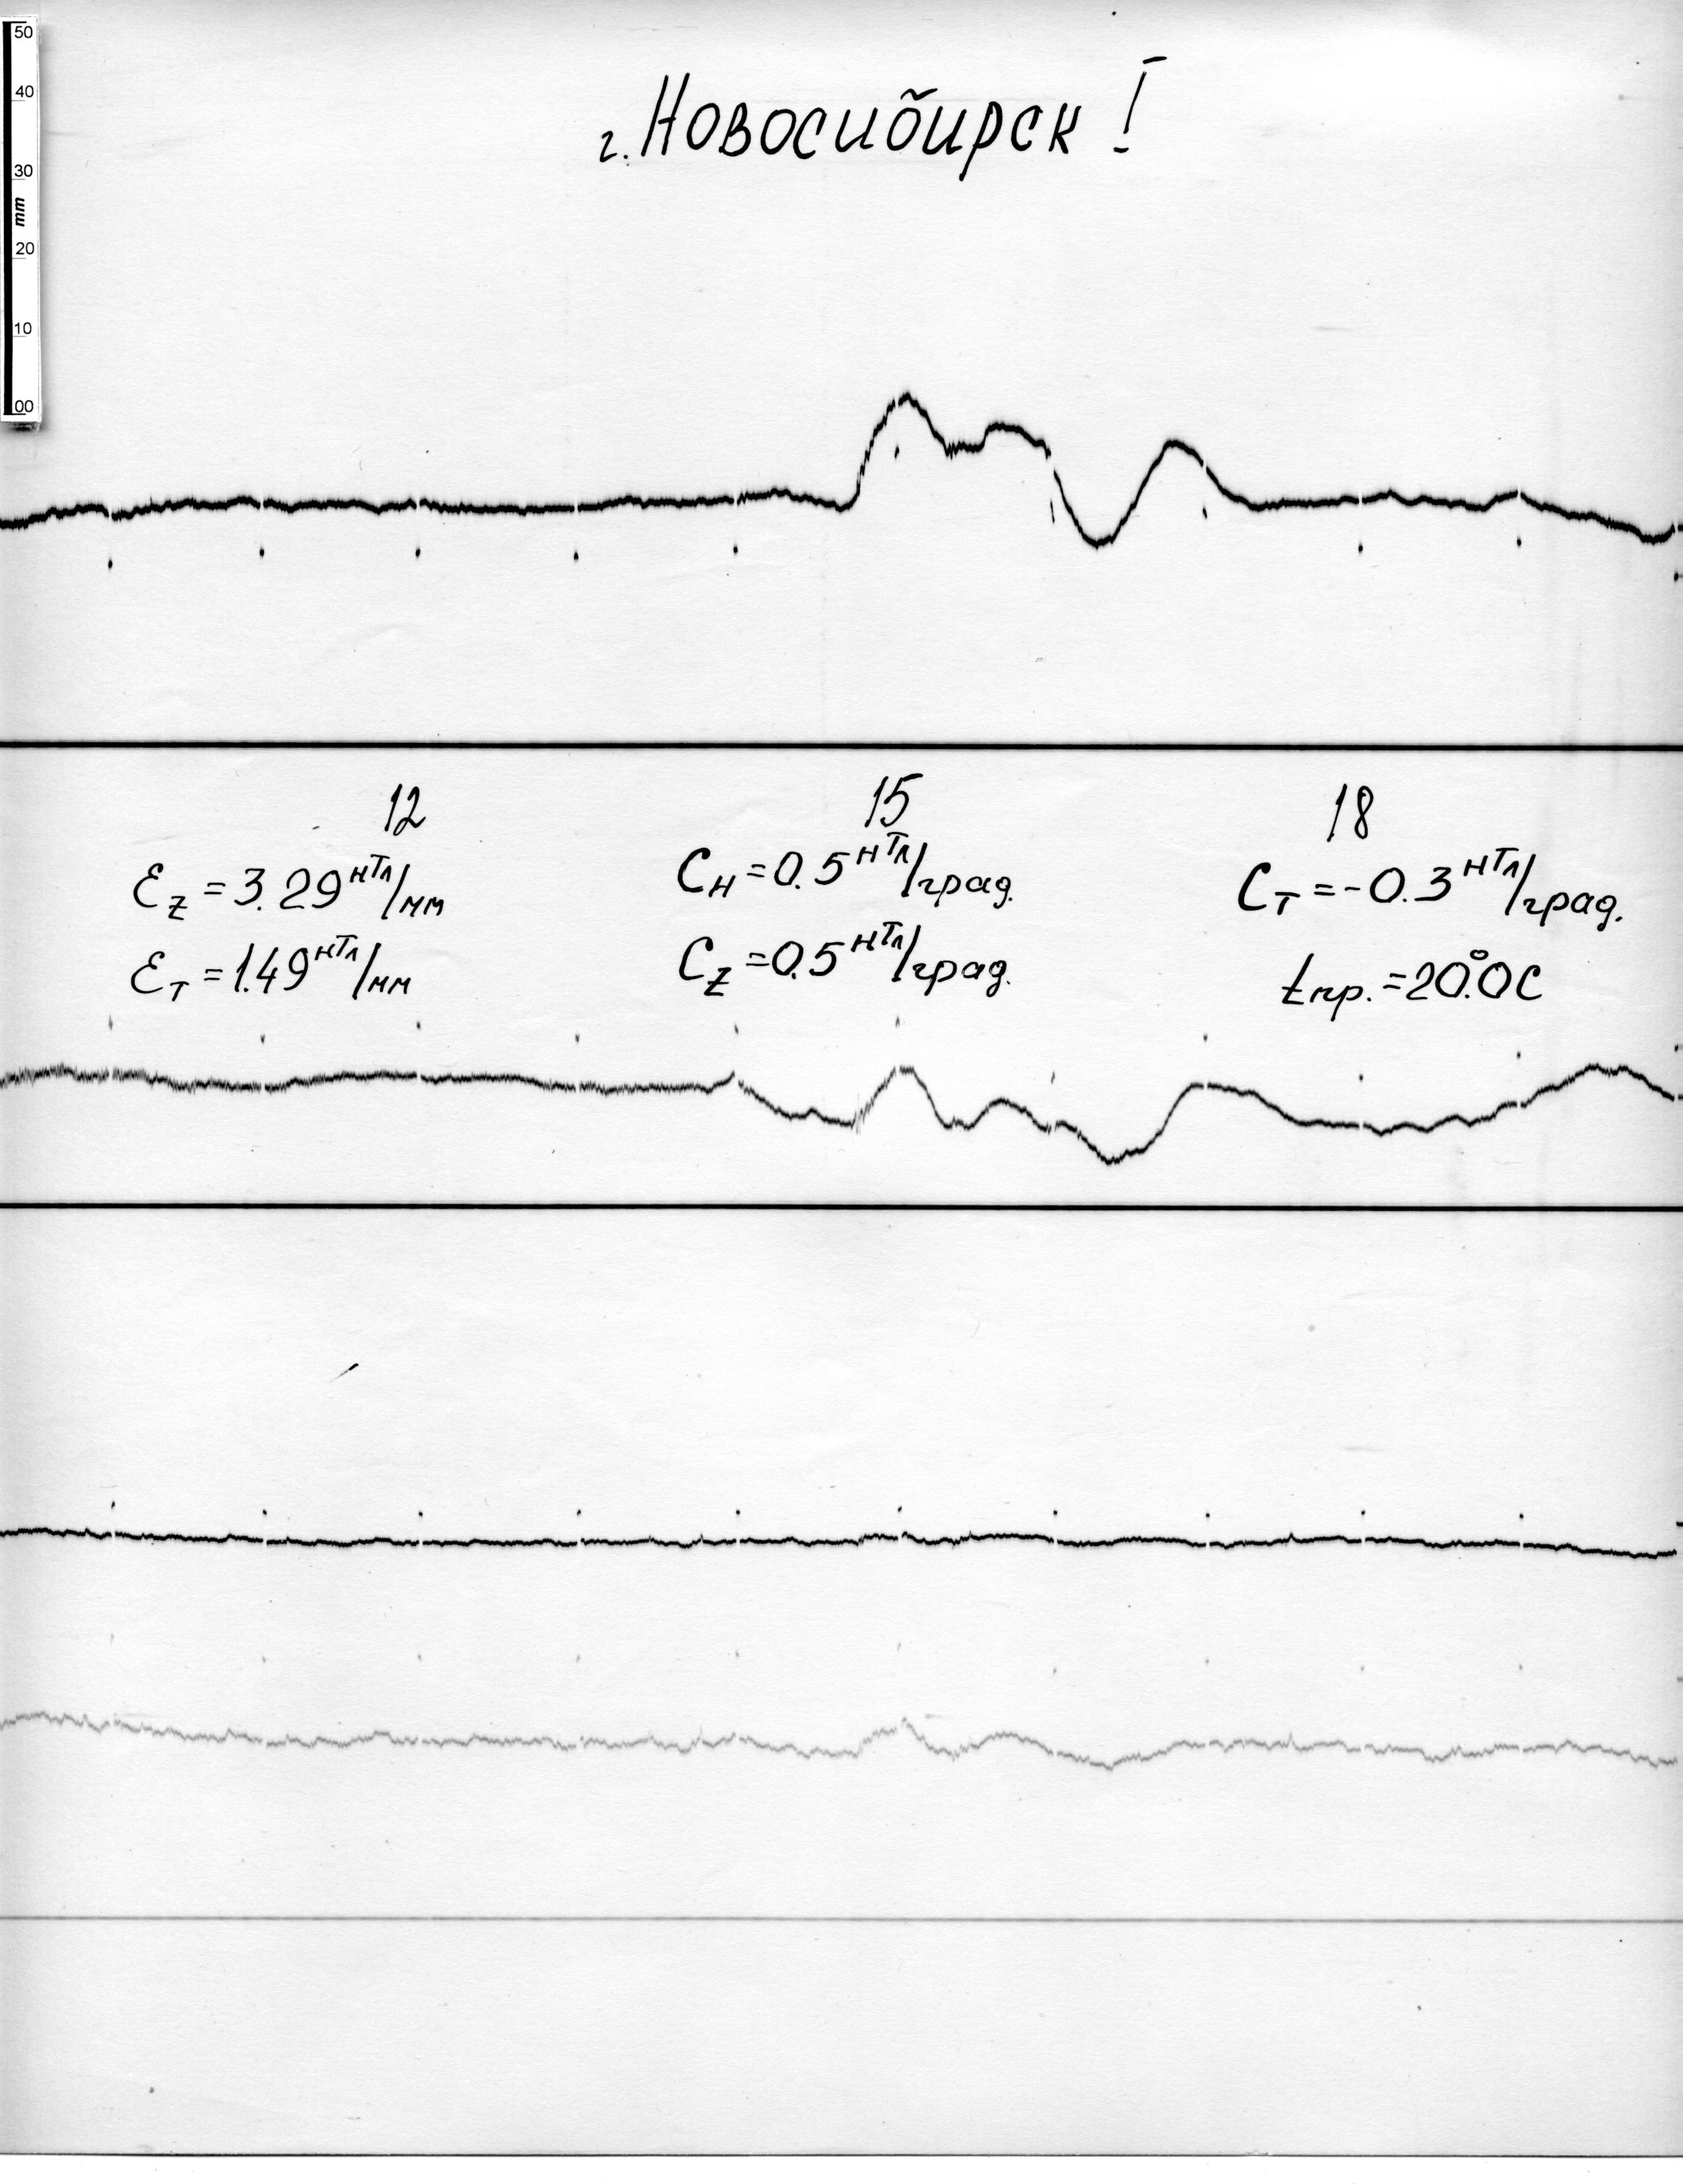 50
40
30
mm
20
10
00
г. Новосибирск I
12 15 18
Ɛz = 3.29 нТл/мм Cн = 0.5 нТл/град. Cт = -0.3 нТл/град.
Ɛт = 1.49 нТл/мм Cz = 0.5 нТл/град. tпр. = 20°.0 С